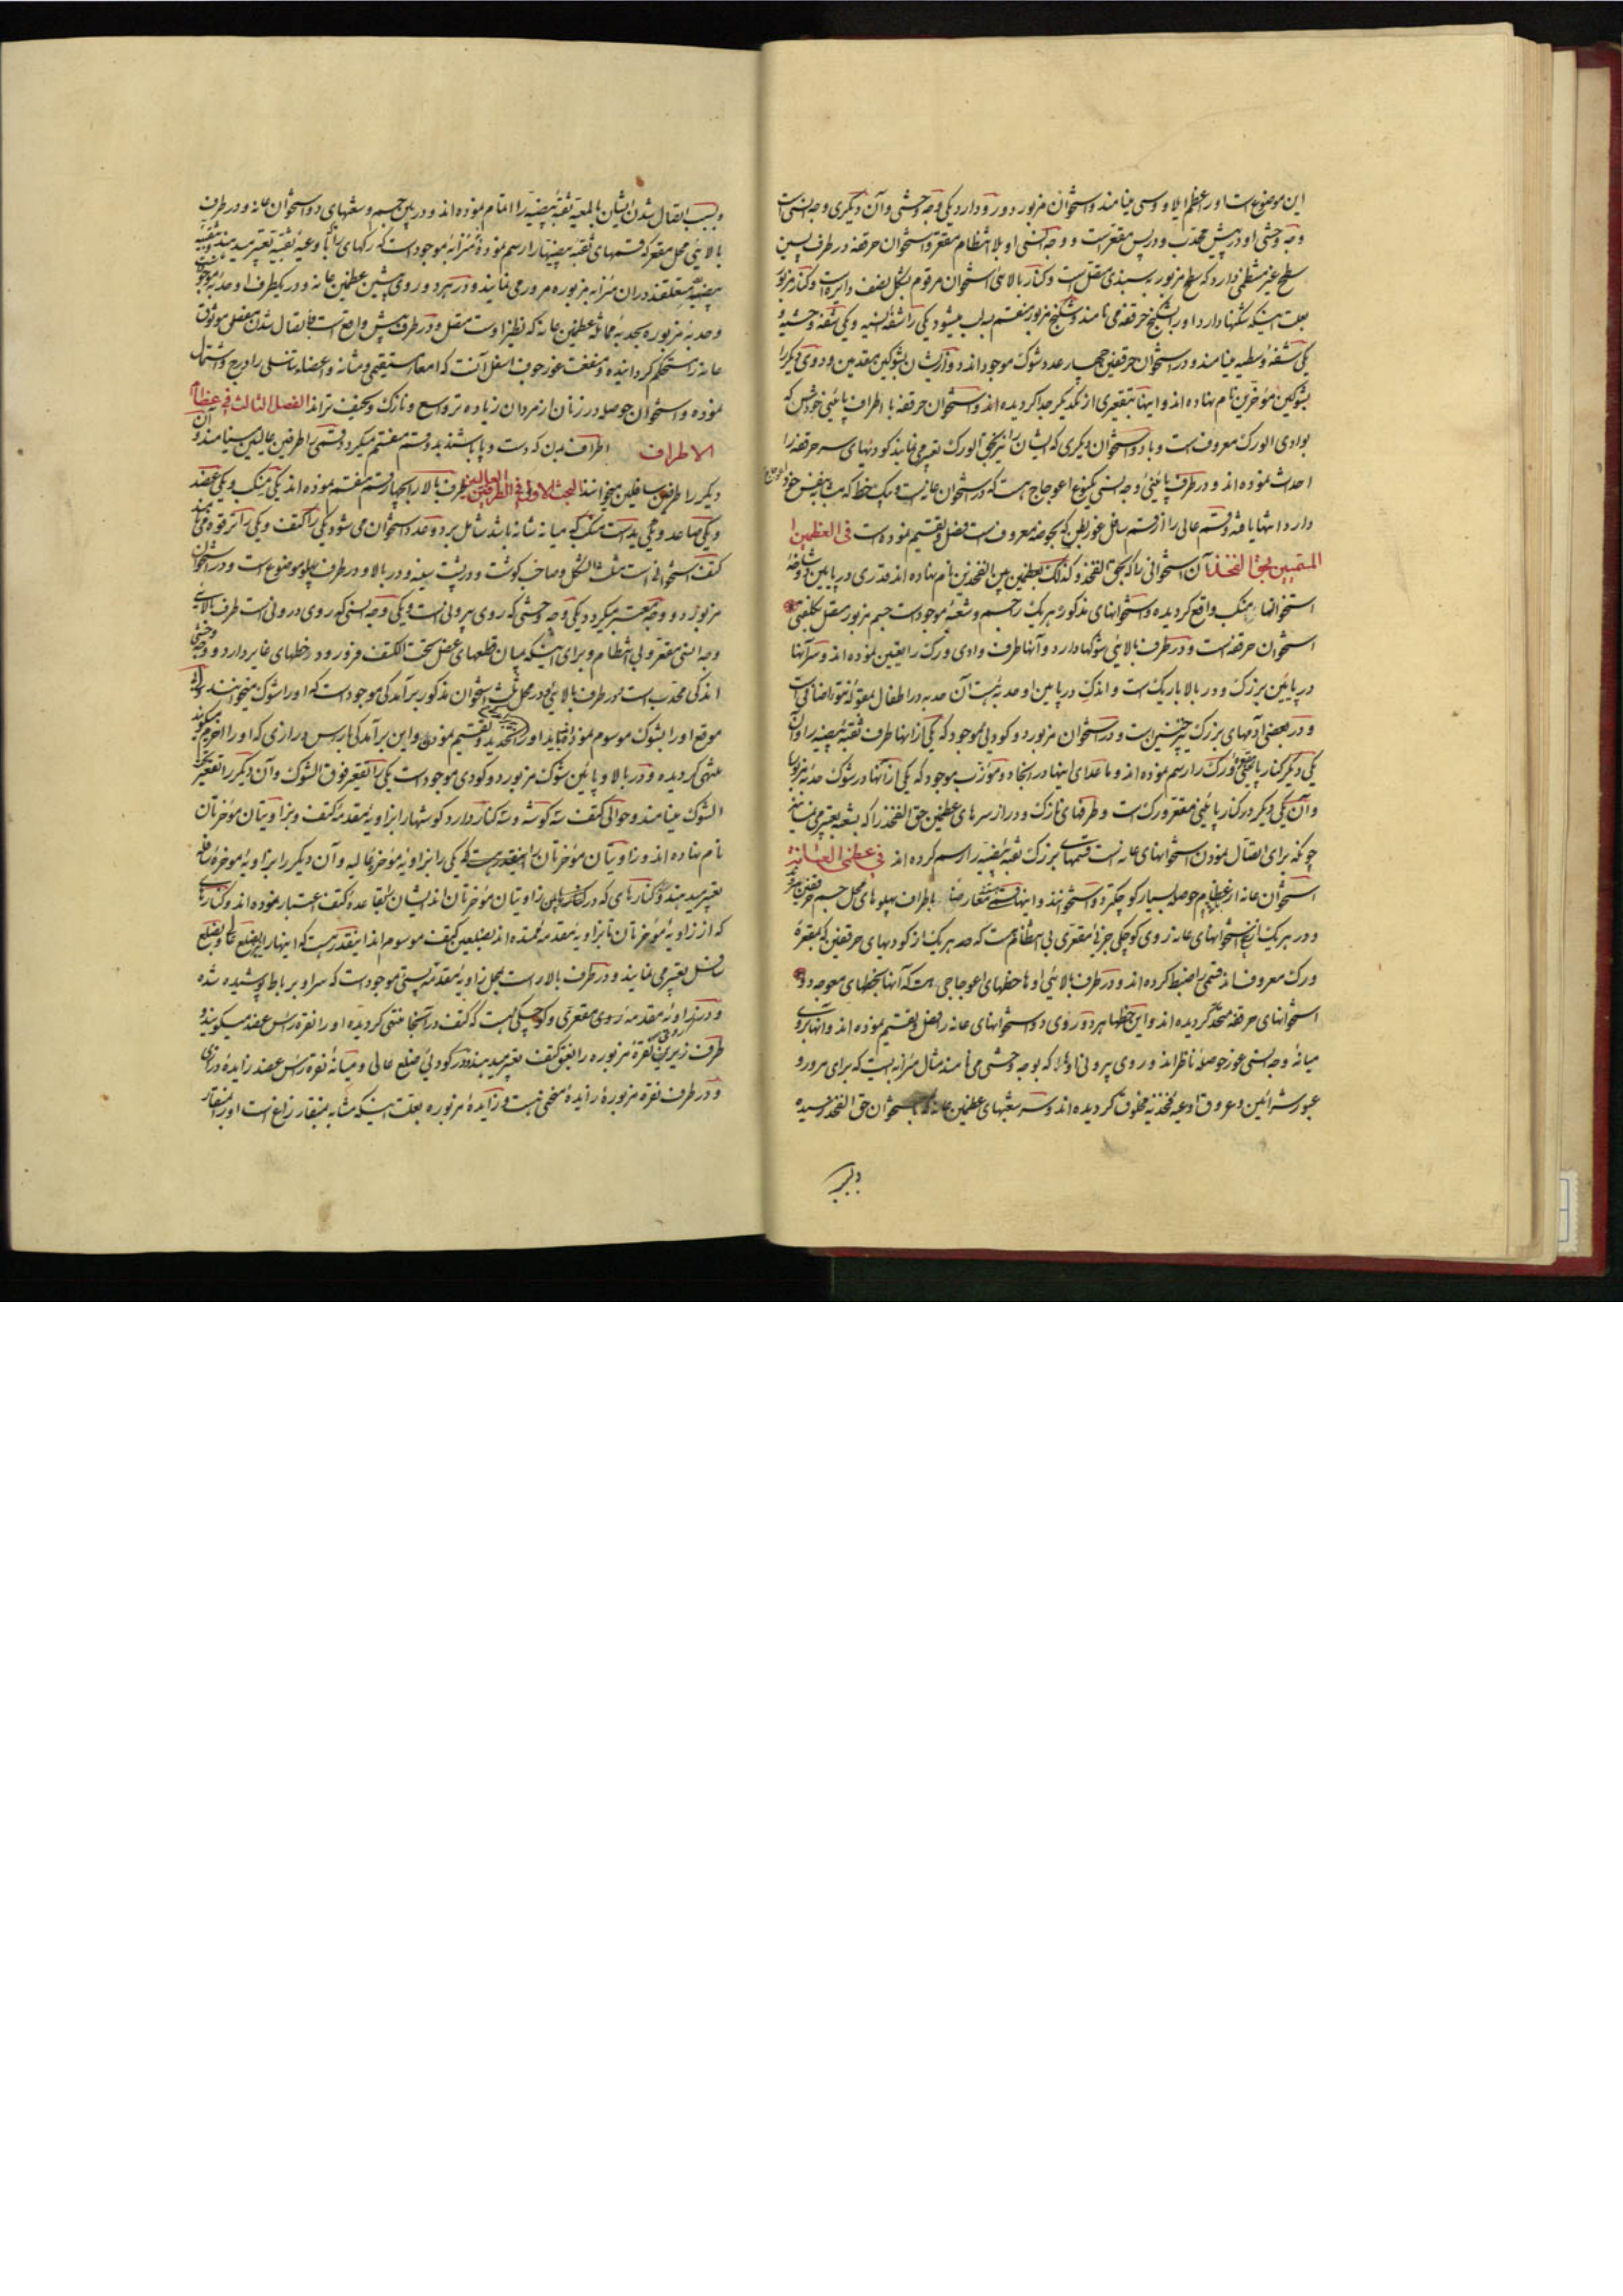 این موضوع است اورا عظم ایلاووسی مینامند و استخوان مزبور دو رو دارد یکی وجه وحشی و آن دیگری وجه انسی است
وجه وحشی او در پیش محدب و در پس مقعر است و وجه انسی او بلا انتظام مقعر و استخوان حرقفه در طرف پسین
سطح غیر منتظمی دارد که سطح مزبور به سندی متصل است و کنار بالائی استخوان مرقوم بشکل نصف دایره است و کنار مزبور
بعلت اینکه شکنها دارد اورا شکنج حرقفه می نامند و شکنج مزبور منقسم به لب میشود یکی را شفهٔ انسیه و یکی شفهٔ وحشیه و
یکی شفهٔ وسطیه مینامند و در استخوان حرقفتین چهار عدد شوک موجود اند دو از ایشان بشوکین مقدمین و دوی دیگر را
بشوکین مؤخرین نام نهاده اند و اینها بتقعیری از یکدیگر جدا کردیده اند و استخوان حرقفه با اطراف پائینی خودش که
بوادی الورک معروف است و با دو استخوان دیگری که ایشان را نیز بحق الورک تعبیر می نمایند کودیهای سر حرقفه را
احداث نموده اند و در طرف پائینی وجه انسی یکنوع اعوجاج هست که در استخوان عانه است و بیک خط که
دارد انتها یافته و قسم عالی را از قسم سافل غور بطن که بحوصه معروف است فصل و تقسیم نموده است فی العظمین
المسمیین بحق الفخذ آن استخوانی را که بحق الفخذ و کذلک بعظمین بین الفخذین نام نهاده اند قدری در پایین دو شاخهٔ
استخوانها واقع کردیده و استخوانهای مذکور هر یک را جسم و شعبهٔ موجود است جسم مزبور متصل بکلفتی
استخوان حرقفه است و در طرف بالائی شوکها دارد و آنها طرف وادی ورک را تعیین نموده اند و سر آنها
در پایین بزرک و در بالا باریک است و اندک در پایین او حدبه هست آن حدبه در اطفال بمقولهٔ نتو اضافی است
و در بعضی آدمهای بزرک نیز چنین است و در استخوان مزبور دو کودی موجود که یکی از آنها طرف ثقبهٔ بیضیه را و آن
یکی دیگر کنار پائینی ورک را رسم نموده اند و ماعدای اینها در آنجا دو موجود که یکی از آنها در شوک حدبهٔ مزبور
و آن یکی دیگر در کنار پائینی مقعر ورک است و طرفهای نازک و دراز سرهای عظمین حق الفخذ را که بشعبه تعبیر می نمایند
چونکه برای اتصال نمودن استخوانهای عانه است قسمهای بزرک ثقبهٔ بیضیه را رسم کرده اند فی عظمی العانة
استخوان عانه از عظام حوصله بسیار کوچکتر دو استخوانند و اینها باطراف پهلوهای محل جسم حرقفتین
و در هر یک از این استخوانهای عانه روی کوچکی جزئی مقعری بی انتظام هست که هر یک از کودیهای حرقفتین که بمقعرهٔ
ورک معروف اند قسمی را ضبط کرده اند و در طرف بالائی اوها خطهای اعوجاجی هست که آنها بخطهای معوجه دو
استخوانهای حرقفه متحد کردیده اند و این خطها هر دو روی دو استخوانهای عانه را فصل و تقسیم نموده اند و آنها بروی
میانهٔ وجه انسی غور حوصله ناظر اند و روی بیرونی اوها را که بوجه وحشی می نامند مثال میزابه ایست که برای مرور و
عبور شرائین و عروق اوعیه فخذیه مخلوق کردیده اند و سر شعبهای عظمین عانه که باستخوان حق الفخذ رسیده
و بسبب اتصال شدن ایشان بالمعیه ثقبهٔ بیضیه را اتمام نموده اند و در بین جسم و شعبهای دو استخوان عانه و در طرف
بالائی محل مقعر که قسمهای ثقبه بیضیها را رسم نموده میزابه موجود است که رکهای را که باوعیهٔ ثقبیه تعبیر میدهند
متعلقند در آن میزابه مزبوره مرور می نمایند و در هر دو روی پیشین عظمین عانه و در یکطرف او حدبه موجود
و حدبهٔ مزبوره بحدبهٔ عظمین عانه که نظیر اوست متصل و در طرف پیش واقع است باتصال شدن مفصل موثوق
عانه را مستحکم کردانیده و منفعت غور جوف اسفل آنست که امعاء مستقیم و مثانه و اعضاء تناسلی را درج و اشتمال
نموده و استخوان حوصله در زنان از مردان زیاده تر وسیع و نازک و نحیف تر اند الفصل الثالث فی عظام
الاطراف اطراف بدن که دست و پا باشند بدو قسم منقسم میکردد قسمی را طرفین عالیتین مینامند و آن
دیگر را طرفین سافلین میخوانند البحث الاول فی الطرفین العالیین طرف بالا را بچهار قسم منقسم نموده اند یکی منکب و یکی عضد
و یکی ساعد و یکی ید است منکب که میانه شانه باشد شامل بر دو عدد استخوان می شود یکی را کتف و یکی را ترقوه می نامند
کتف استخوانی است مثلث الشکل و صاحب کوشت و در پشت سینه و در بالا و در طرف پهلو موضوع است و در استخوان
مزبور دو وجه معتبر میکردد یکی وجه وحشی که روی بیرونی است و یکی وجه انسی که روی درونی است طرف بالائی
وجه انسی مقعر و بی انتظام و برای اینکه میان قطعهای عضل تحت الکتف فرو رود خطهای غایر دارد و وجه وحشی
اندکی محدب است و در طرف بالائی و در محل ثلث استخوان مذکور برآمدگی موجود است که اورا شوک میخوانند
موقع اورا بشوک موسوم نموده و تقسیم نموده و این برآمدگی بارأس درازی که اورا اخرم میکویند
منتهی کردیده و در بالا و پایین شوک مزبور دو کودی موجود است یکی را تقعیر فوق الشوک و آن دیگر را تقعیر تحت
الشوک مینامند و حوالی کتف سه کوشه و سه کنار دارد کوشها را بزاویهٔ مقدمهٔ کتف و بزاویتان مؤخرتان
نام نهاده اند و زاویتان مؤخرتان را اینقدر هست که یکی را بزاویهٔ مؤخرهٔ عالیه و آن دیگر را بزاویهٔ مؤخرهٔ سافله
تعبیر میدهند و کنارهای که در میان زاویتان مؤخرتان اند ایشان را بقاعدهٔ کتف اعتبار نموده اند و کنارهای
که از زاویهٔ مؤخرتان تا بزاویهٔ مقدمه ممتده اند بضلعین کتف موسوم اند اینقدر هست که اینها را بضلع عالی و بضلع
سافل تعبیر می نمایند و در طرف بالا راست بمحل زاویهٔ مقدمه پستی موجود است که سر او بر باط پوشیده شده
و در زاویهٔ مقدمه روی مقعری و کوچکی هست که کتف در آنجا منتهی کردیده اورا نقرهٔ رأس عضد میکویند و
طرف زیرین نقرهٔ مزبوره را بعنق کتف تعبیر میدهند و در کودی ضلع عالی و میانهٔ نقرهٔ رأس عضد زایدهٔ درازی
و در طرف نقرهٔ مزبوره زایدهٔ منحنی هست و زایدهٔ مزبوره بعلت اینکه مشابه بمنقار زاغ است اورا بمنقار